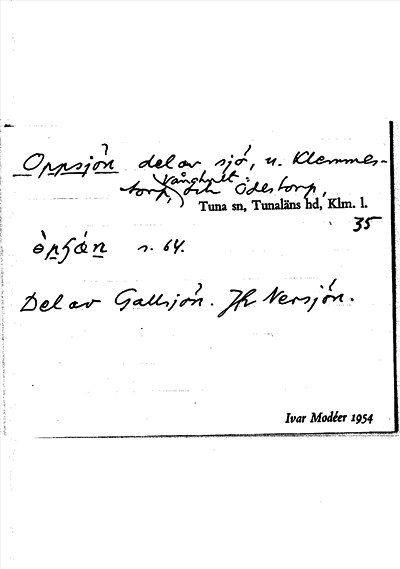 Oppsjön del av sjö, u. Klemmes-
torp, Vånghult och Ödestorp,
Tuna sn, Tunaläns hd, Klm. l.
35
s. 64.
Del av Gallsjön. Jfr Nersjön.
Ivar Modéer 1954